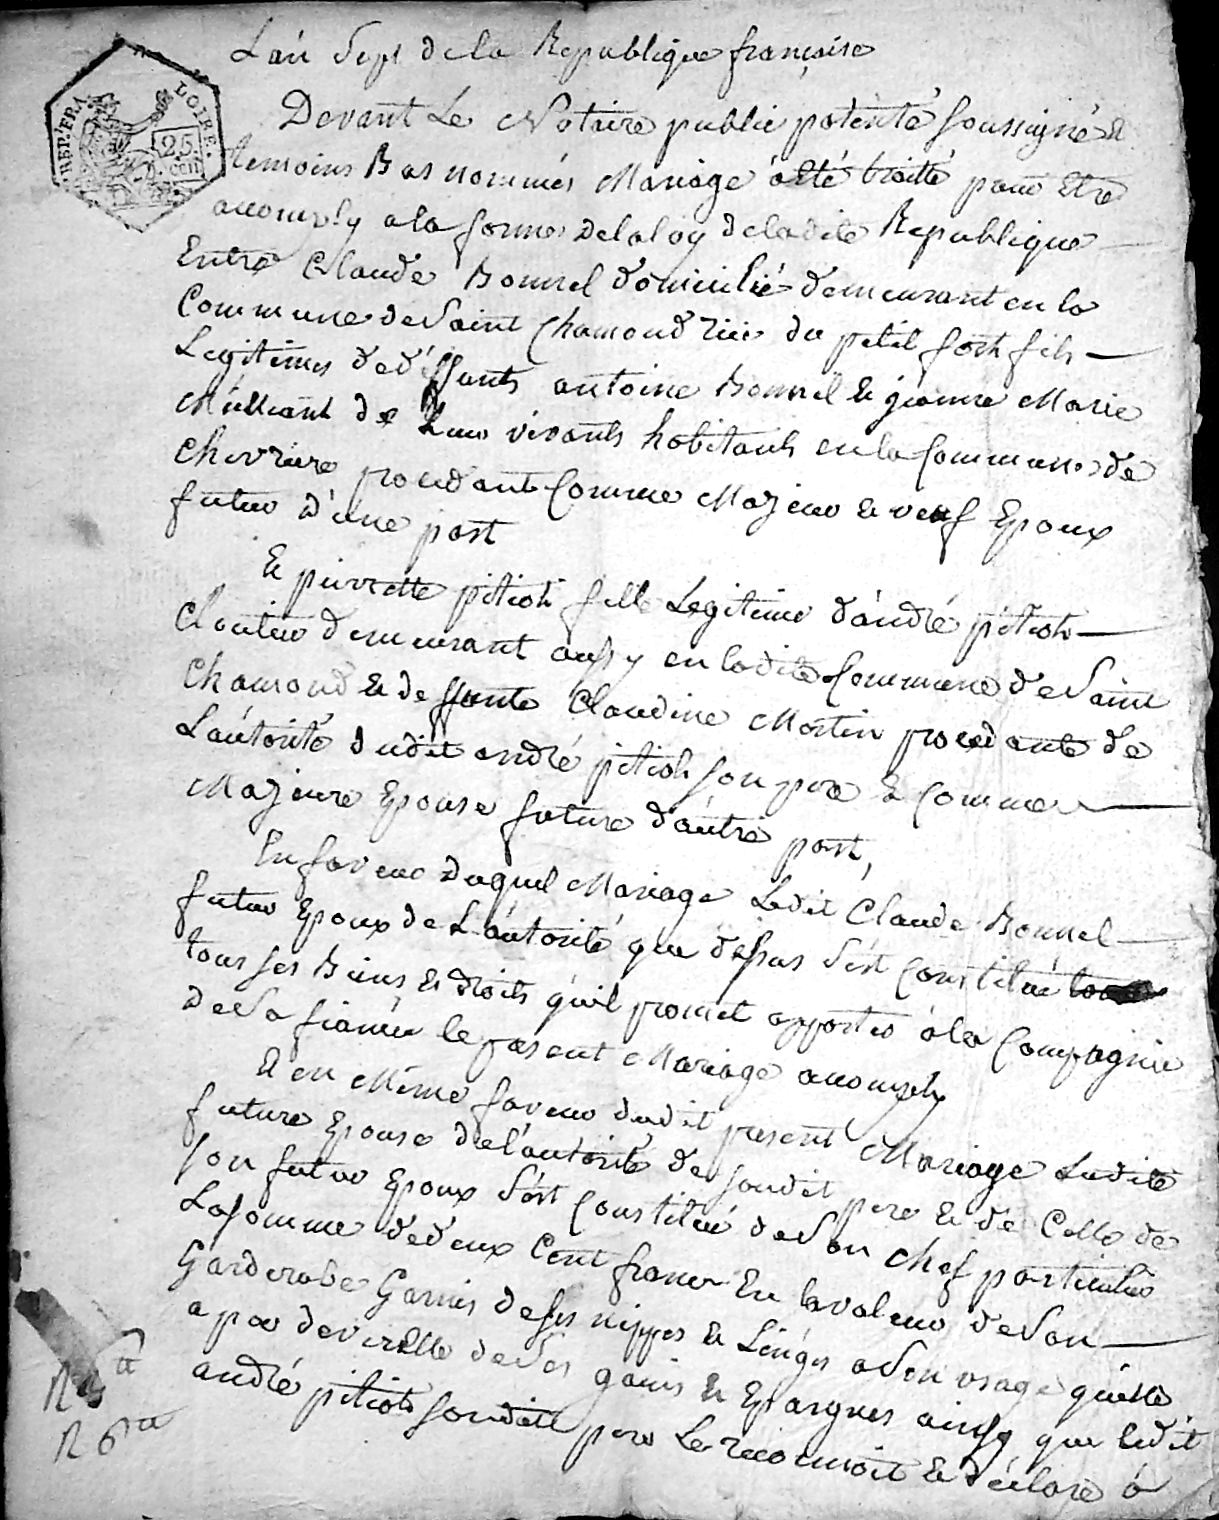 L'an Sept de la Republique française
REP. FRA. LOIRE. 25 cen
Devant Le Notaire public patenté soussigné &
temoins Bas nommés Mariage a été traitté pour Etre
acomply a la forme de la loy de ladite Republique
Entre Claude Bonnel domicilié demeurant en la
Commune de Saint Chamond rüe du petit fort fils
Legitimes de déffunts antoine Bonnel & jeanne Marie
de Leur vivants habitants en la Commune de
Chevriere procédant Comme Majeur & veuf Epoux
futur d'une part
& pierrette pitiot fille Legitime d'andré pitiot
Cloutier demeurant aussy en ladite Commune de Saint
Chamond & de deffunte Claudine Martin procedante de
L'autorité dudit andré pitiot son pere & comme
Majeure Epouse future d'autre part,
En faveur duquel Mariage Ledit Claude Bonnel
futur Epoux de L'autorité que dessus s'est Constitué
tous ses Biens & droits qu'il promet apporter à la Compagnie
de Sa fiancée le present Mariage acomply
& en Même faveur dudit present Mariage Ladite
future Epouse de l'autorité de sondit pere & de Celle de
son futur Epoux s'est Constitué de Son Chef particulier
La somme de deux Cent francs En la valeur de Son
Garderobe Garnis de ses nippes & Linges a Son usage qu'elle
a par devers Elle de Ses gains & Epargnes ainsy que ledit
andré pitiot sondit pere Le reconnoit & déclare à
R 6